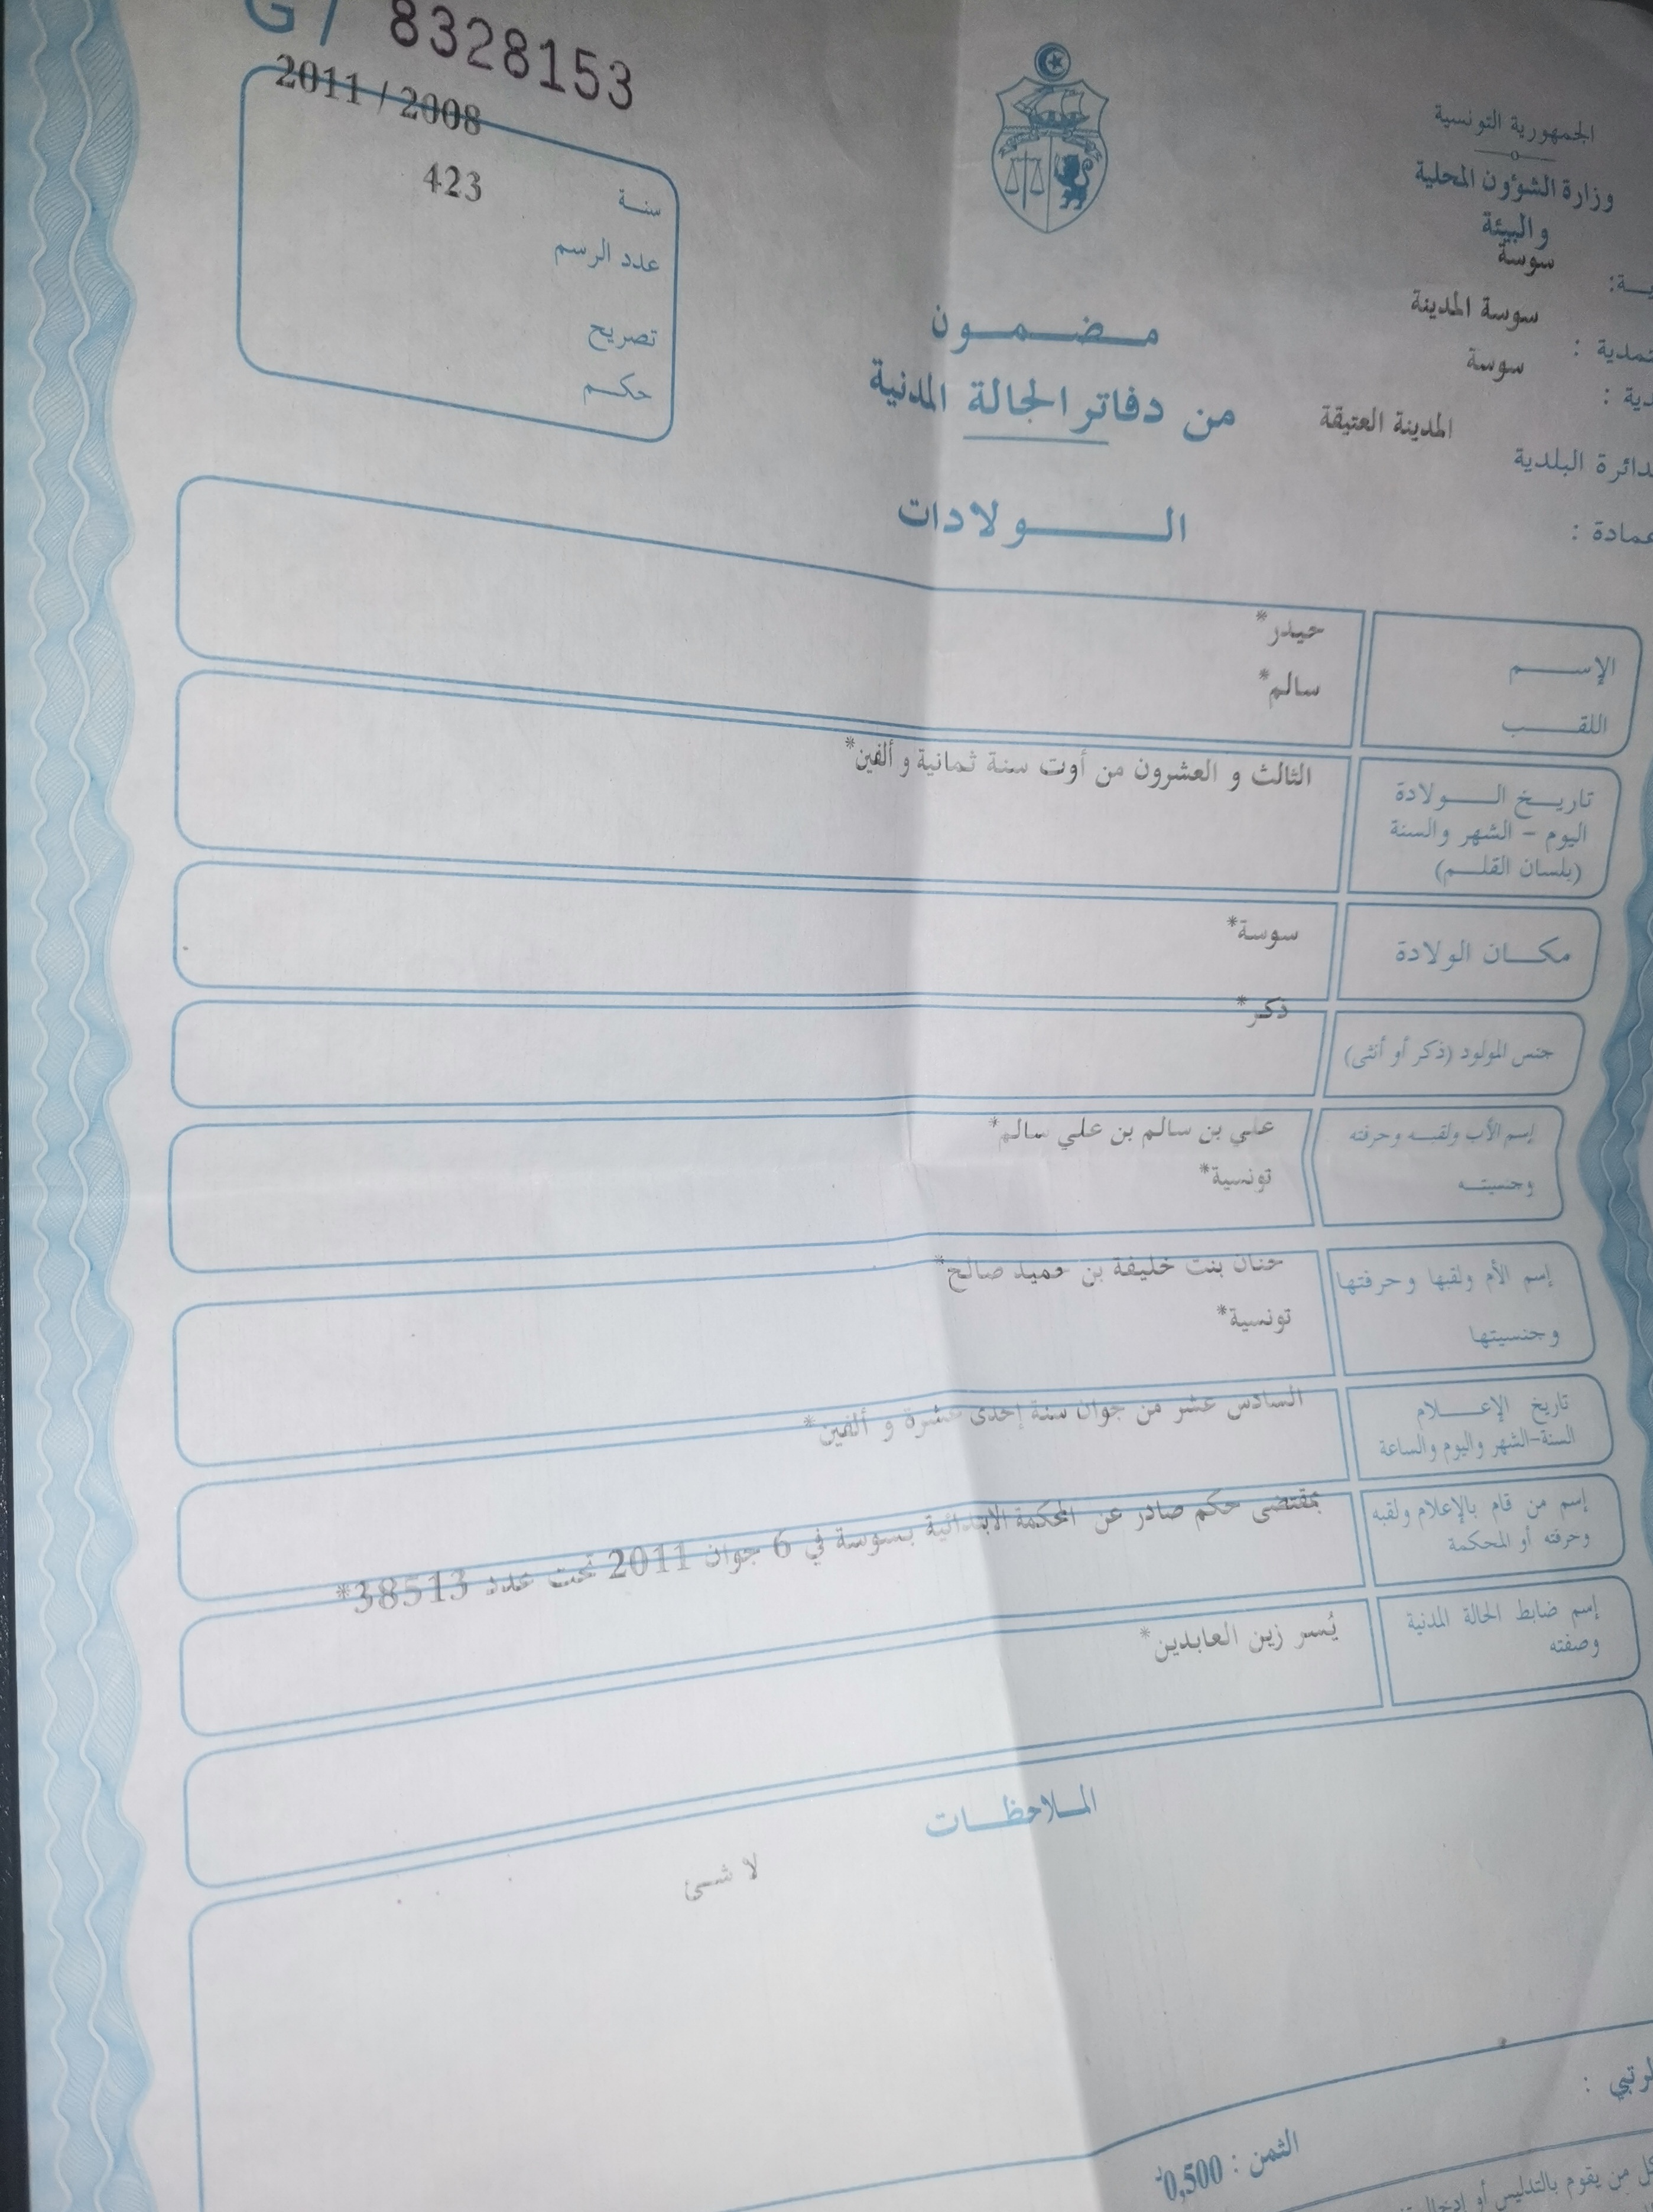 G7 8328153
2011 / 2008
سنة
423
عدد الرسم
تصريح
حكم
الجمهورية التونسية
وزارة الشؤون المحلية
والبيئة
سوسة
سوسة المدينة
سوسة
المدينة العتيقة
دائرة البلدية
عمادة :
مضمون
من دفاتر الحالة المدنية
الولادات
الإسم
حيدر*
اللقب
سالم*
تاريخ الولادة
اليوم - الشهر والسنة
(بلسان القلم)
الثالث و العشرون من أوت سنة ثمانية و ألفين*
مكان الولادة
سوسة*
جنس المولود (ذكر أو أنثى)
ذكر*
إسم الأب ولقبه وحرفته
وجنسيته
علي بن سالم بن علي سالم*
تونسية*
إسم الأم ولقبها وحرفتها
وجنسيتها
حنان بنت خليفة بن حميد صالح*
تونسية*
تاريخ الإعلام
السنة-الشهر واليوم والساعة
السادس عشر من جوان سنة إحدى عشرة و ألفين*
إسم من قام بالإعلام ولقبه
وحرفته أو المحكمة
بمقتضى حكم صادر عن المحكمة الابتدائية بسوسة في 6 جوان 2011 تحت عدد 38513*
إسم ضابط الحالة المدنية
وصفته
يُسر زين العابدين*
الملاحظات
لا شئ
الثمن : 0,500د
كل من يقوم بالتدليس أو إدخال